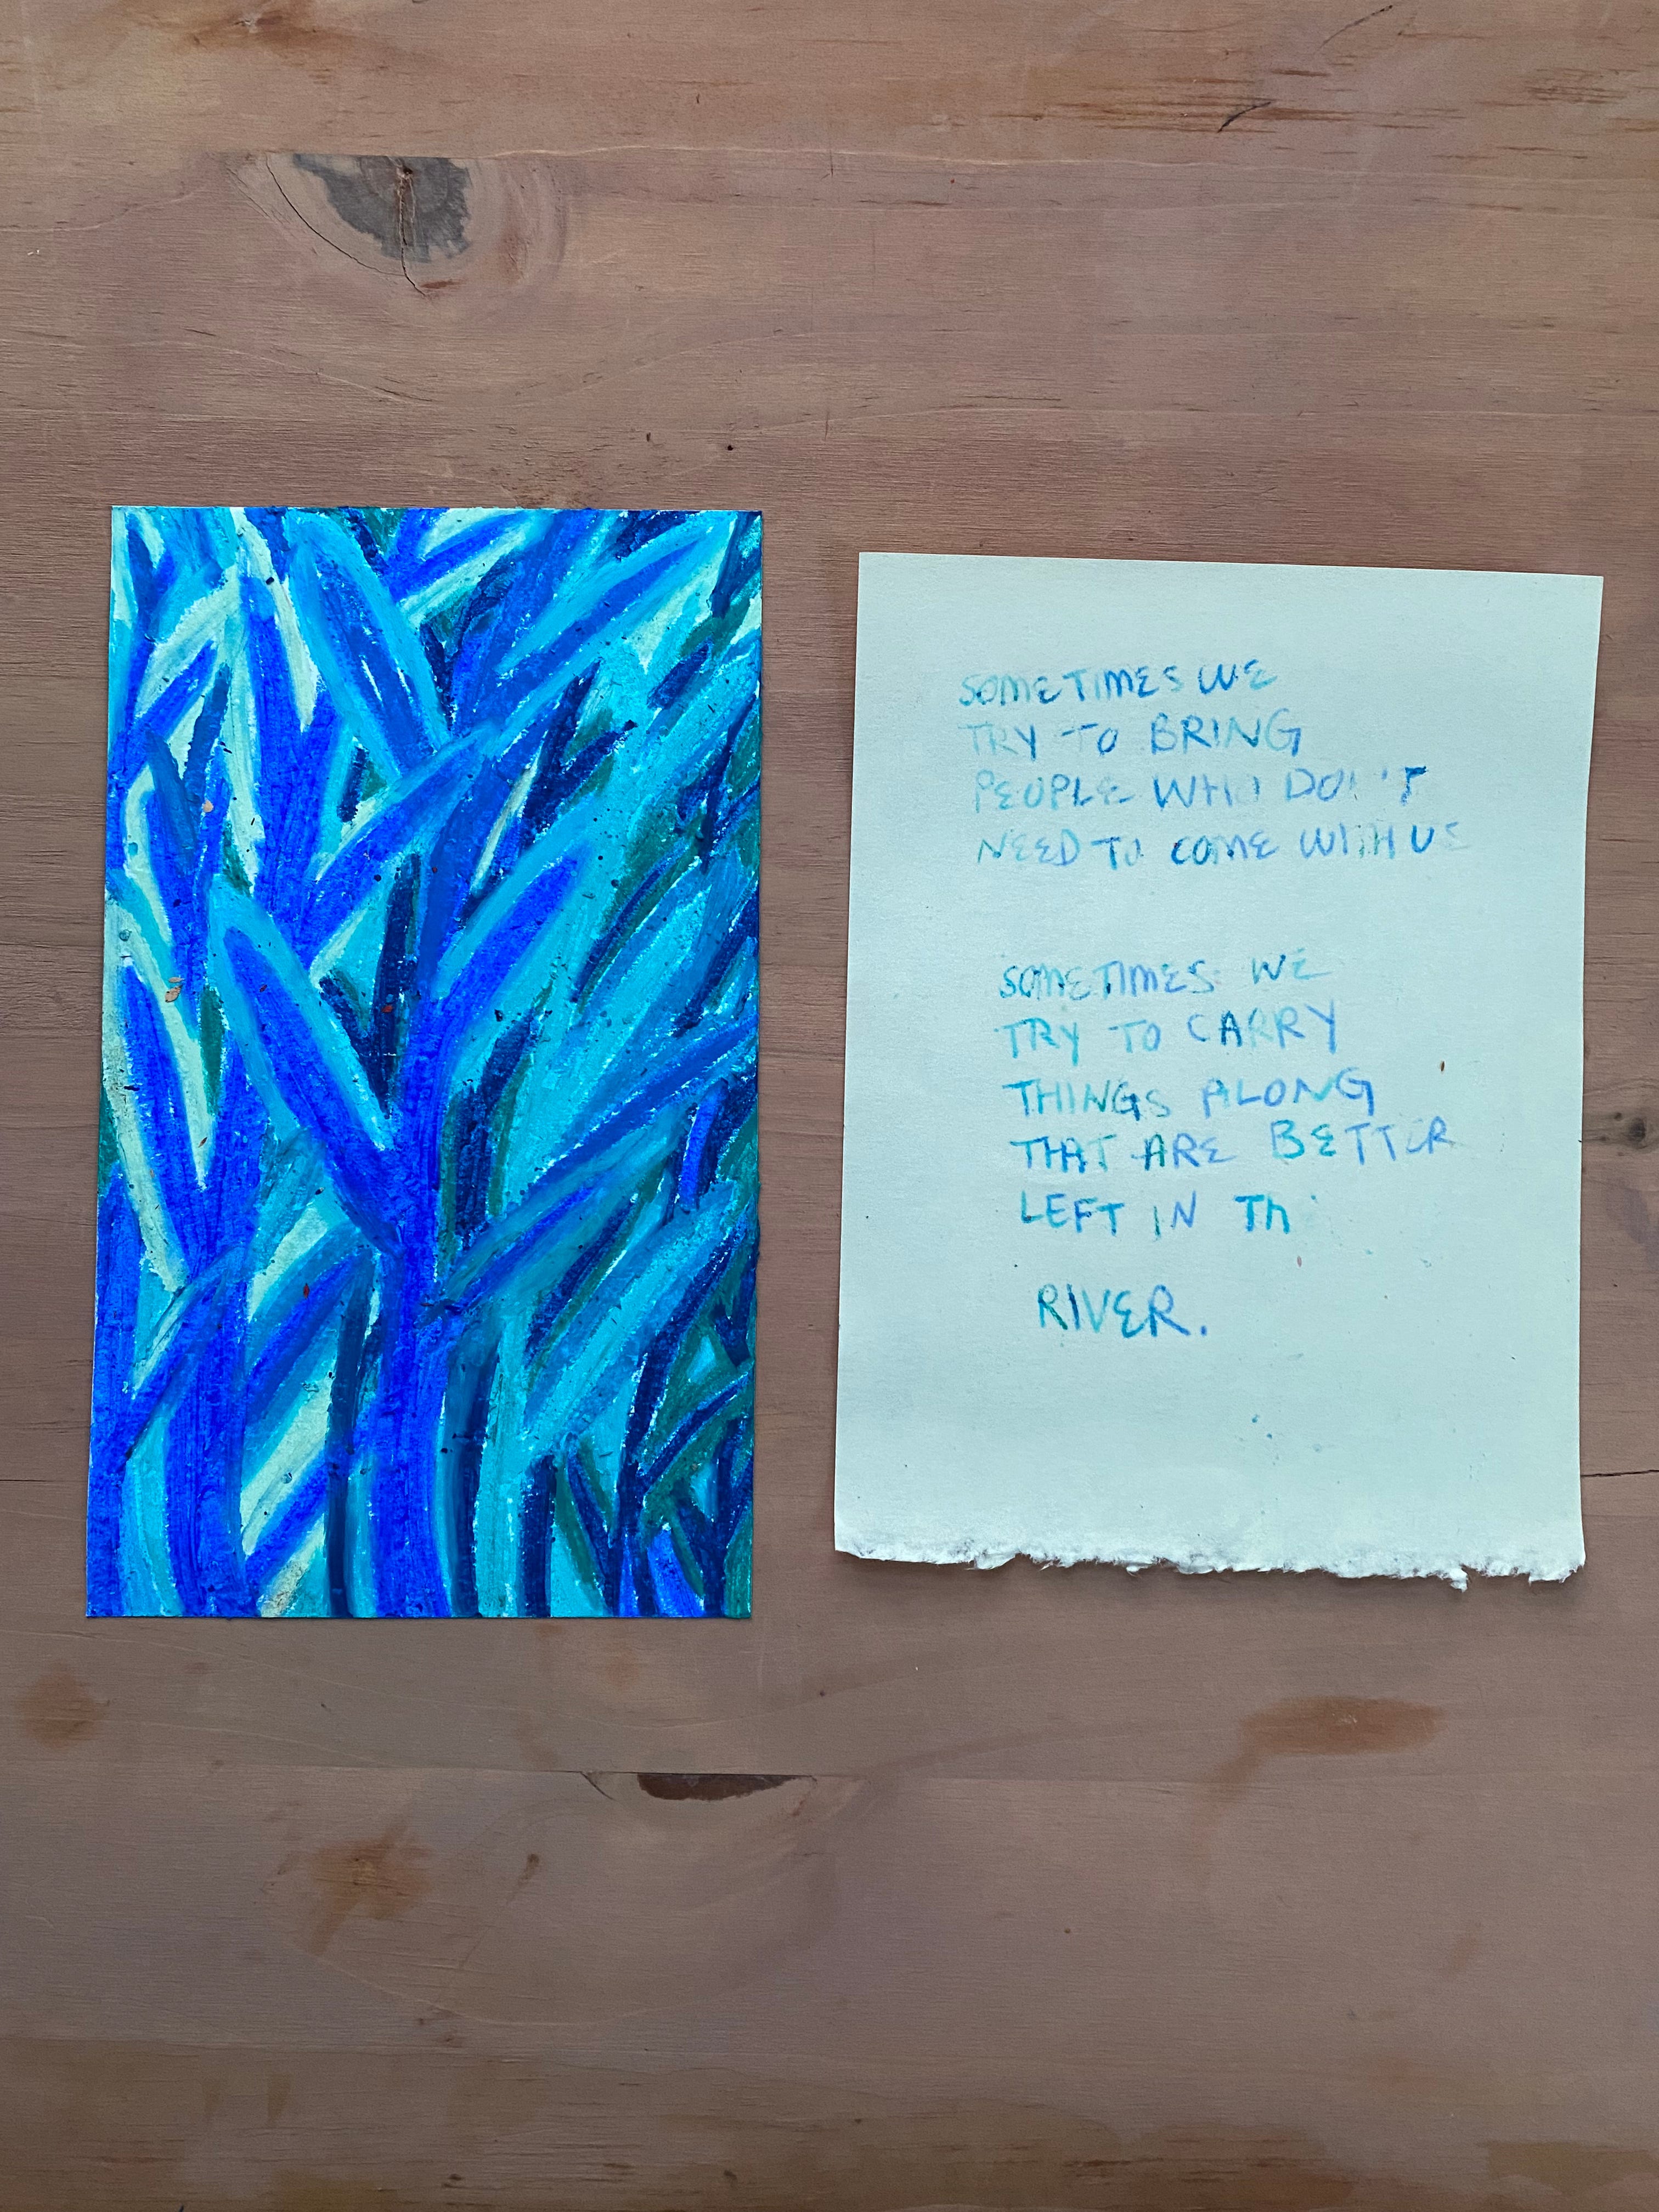 SOMETIMES WE
TRY TO BRING
PEOPLE WHO DON'T
NEED TO COME WITH US
SOMETIMES WE
TRY TO CARRY
THINGS ALONG
THAT ARE BETTER
LEFT IN Th
RIVER.